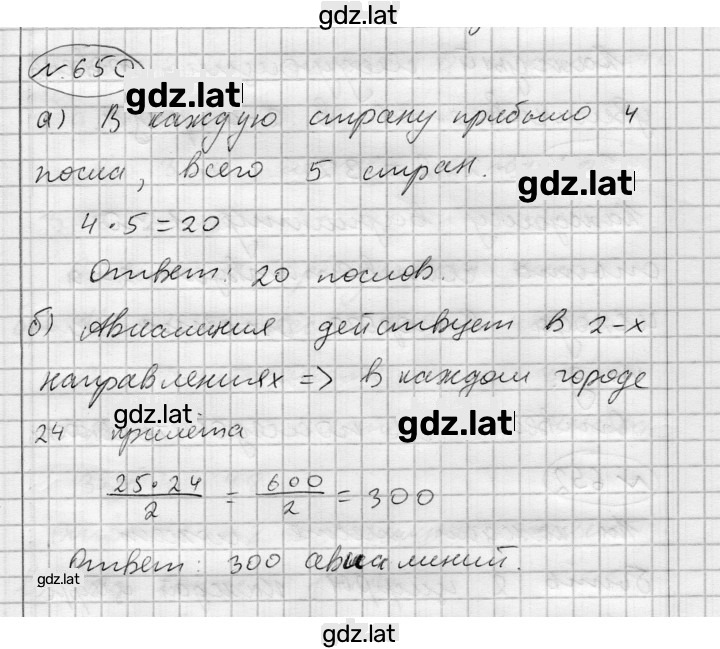 gdz.lat
№650
gdz.lat
а) В каждую страну прибыло 4
посла, всего 5 стран.
gdz.lat
4 · 5 = 20
Ответ: 20 послов.
б) Авиалиния действует в 2-х
направлениях => в каждом городе
gdz.lat
24 прилёта
gdz.lat
25·24/2 = 600/2 = 300
Ответ: 300 авиалиний.
gdz.lat
gdz.lat